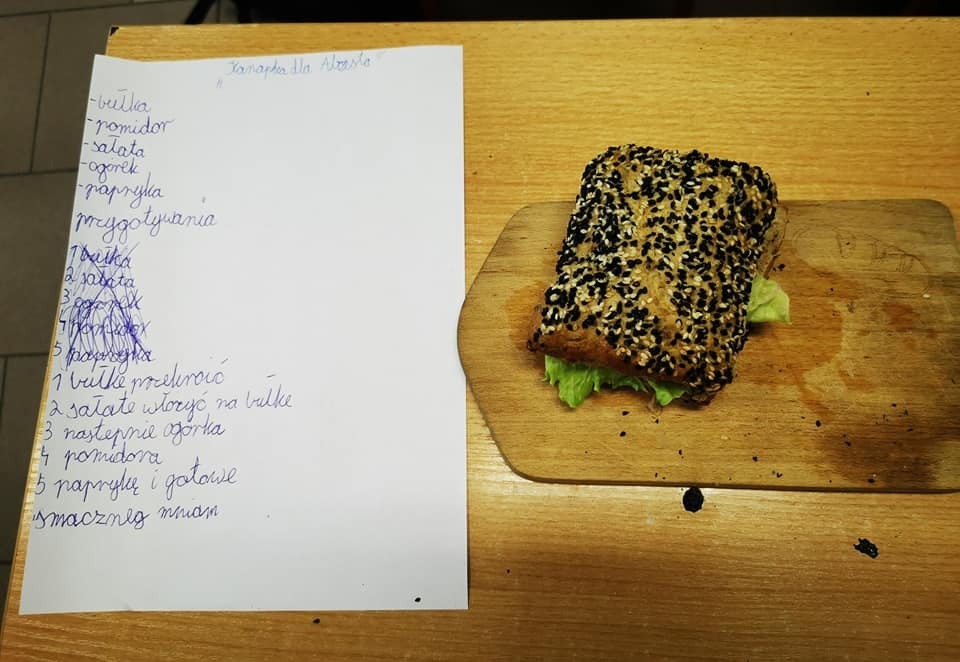 „Kanapka dla Alcesta”
- bułka
- pomidor
- sałata
- ogórek
- papryka
przygotywania
1 bułka
2 sałata
3 ogórek
4 pomidor
5 papryka
1 bułke przekroić
2 sałate włorzyć na bułke
3 nastempnie ogórka
4 pomidora
5 paprykę i gotowe
smaczneg mniam